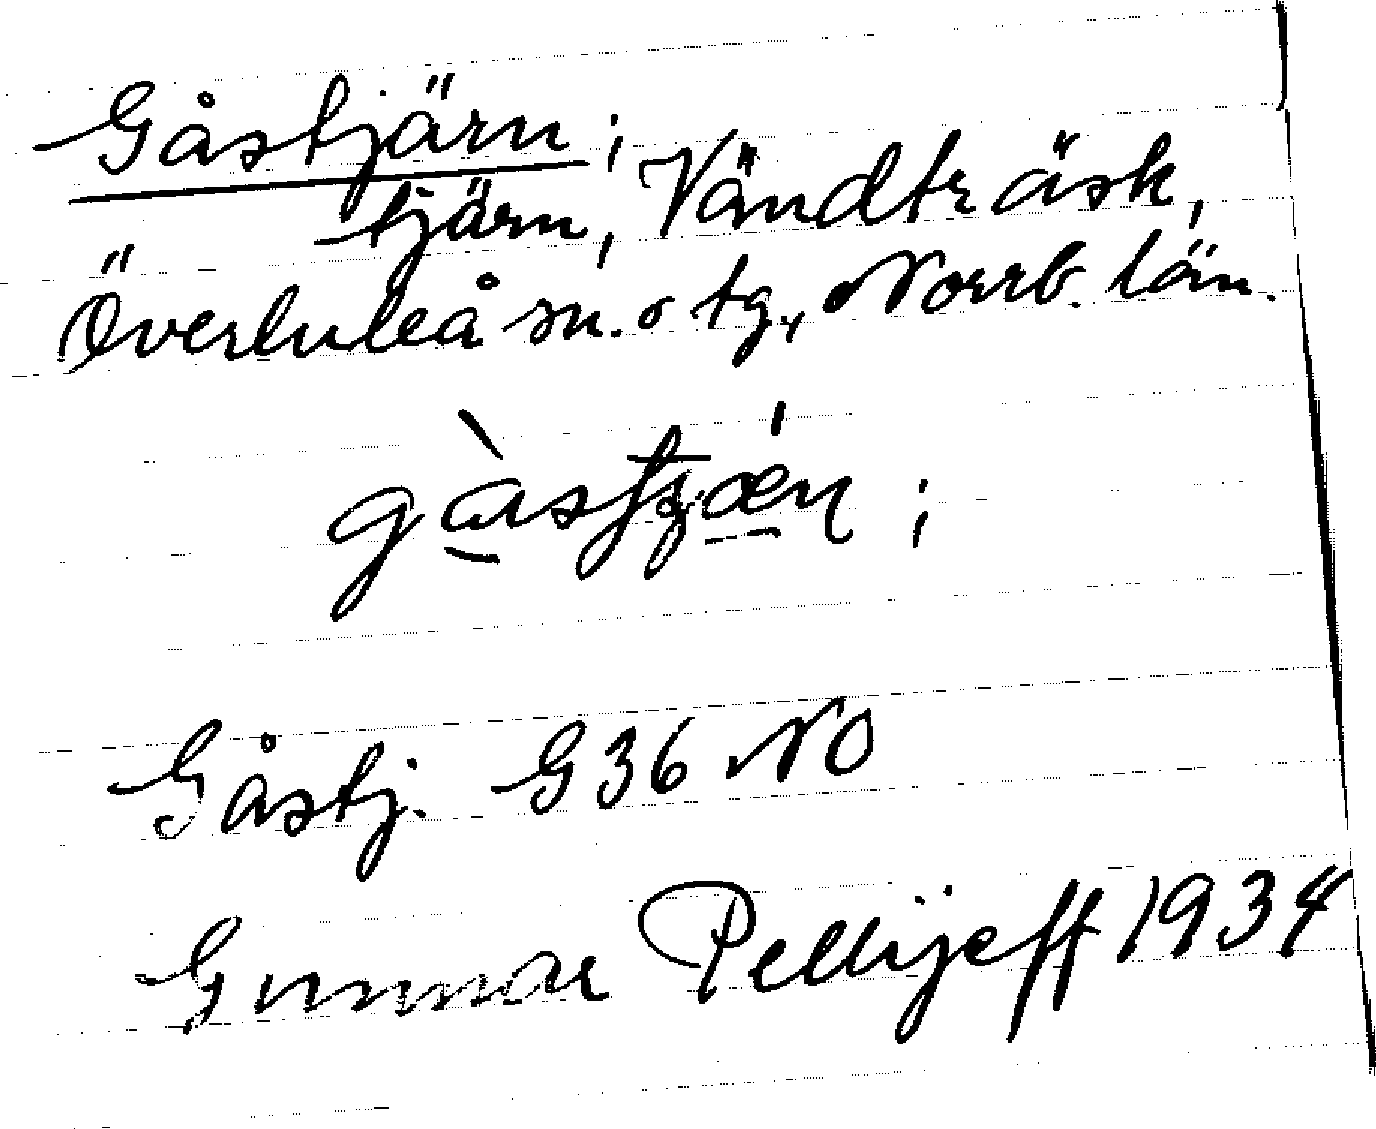 Gåstjärn;
tjärn, Vändträsk,
Överluleå sn. o tg., Norrb. län.
Gåstj. G36 NO
Gunnar Pellijeff 1934